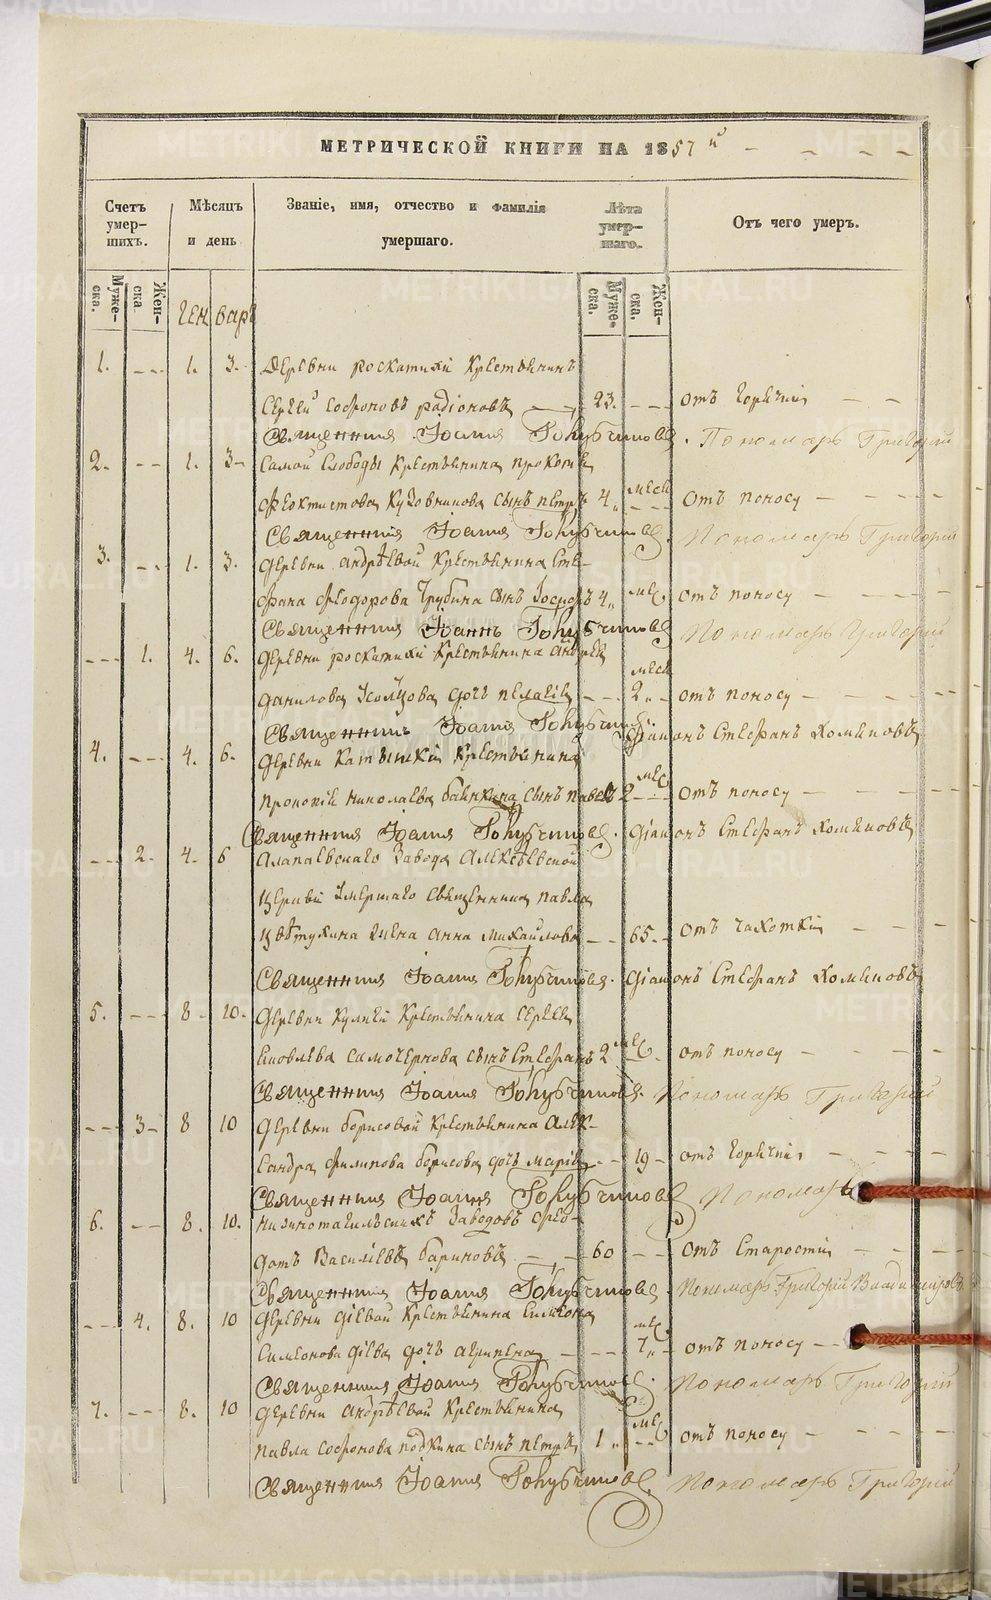 МЕТРИЧЕСКОЙ КНИГИ НА 1857й
Счетъ умер-шихъ.
Мѣсяцъ и день
Званіе, имя, отчество и фамилія умершаго.
Лѣта умер-шаго.
Отъ чего умеръ.
Муже-ска.
Жен-ска
Муже-ска.
Жен-ска.
Генварь
1. 1. 3. Деревни роскатихи Крестьянинъ
Сергѣй Софроновъ радіоновъ 23. отъ горячки
Священникъ Іоаннъ Пономарь Григорій
2. 1. 3 Самой Слободы Крестьянина прокопія
Феоктистова сынъ петръ 4 мес отъ поносу
Священникъ Іоаннъ Пономарь Григорій
3. 1. 3. Деревни андрѣевой Крестьянина Сте-
фана Феодорова Трубина сынъ 4 мес отъ поносу
Священникъ Іоаннъ Пономарь Григорій
1. 4. 6. Деревни роскатихи Крестьянина андрея
данилова Усольцова дочь пелагія 2 мес отъ поносу
Священникъ Іоаннъ Діаконъ Стефанъ Хомяковъ
4. 4. 6. Деревни Крестьянина
прокопія николаева сынъ павелъ 2 мес отъ поносу
Священникъ Іоаннъ Діаконъ Стефанъ Хомяковъ
2. 4. 6 Алапаевскаго Завода Алексѣевской
церкви умершаго священника павла
Цвѣтухина жена анна михайлова 65 отъ чахотки
Священникъ Іоаннъ Діаконъ Стефанъ Хомяковъ
5. 8 10. Деревни Крестьянина Сергея
Яковлева самочернова сынъ Стефанъ 2 мес отъ поносу
Священникъ Іоаннъ Пономарь Григорій
3 8 10 Деревни борисовой Крестьянина алек-
сандра филипова борисова дочь марія 19 отъ горячки
Священникъ Іоаннъ Пономарь
6. 8. 10. нижнотагильскихъ Заводовъ Фео-
дотъ Василіевъ бариновъ 60 отъ Старости
Священникъ Іоаннъ Пономарь Григорій
4. 8. 10 Деревни діевой Крестьянина Симеона
Симеонова діева дочь агрипена 7 мес отъ поносу
Священникъ Іоаннъ Пономарь Григорій
7. 8. 10 Деревни андрѣевой Крестьянина
павла софронова подкина сынъ петръ 1 мес отъ поносу
Священникъ Іоаннъ Пономарь Григорій
METRIKI.GASO-URAL.RU